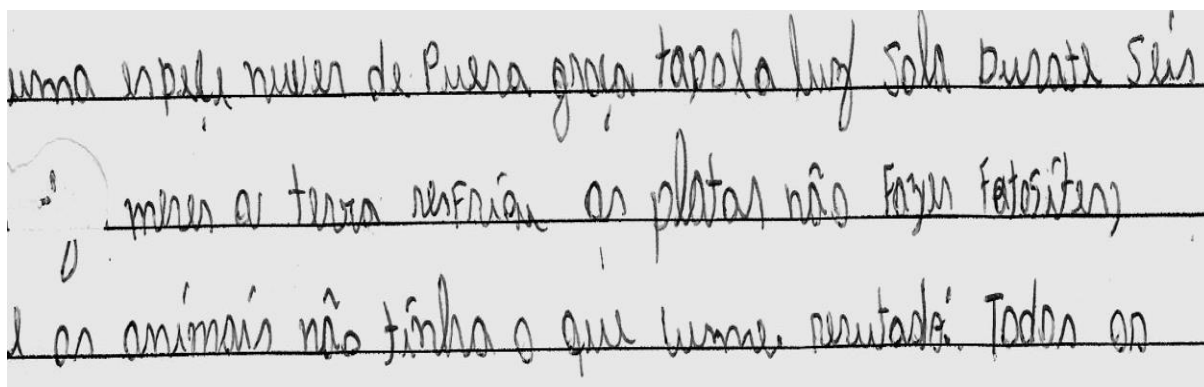 uma espeçi nuves de Puera graça tapola luz Sola Durate Seis
meses a terra resFriou as platas não Fazer Fotosites,
e os animais não tinha o que cume. resutado: Todos os